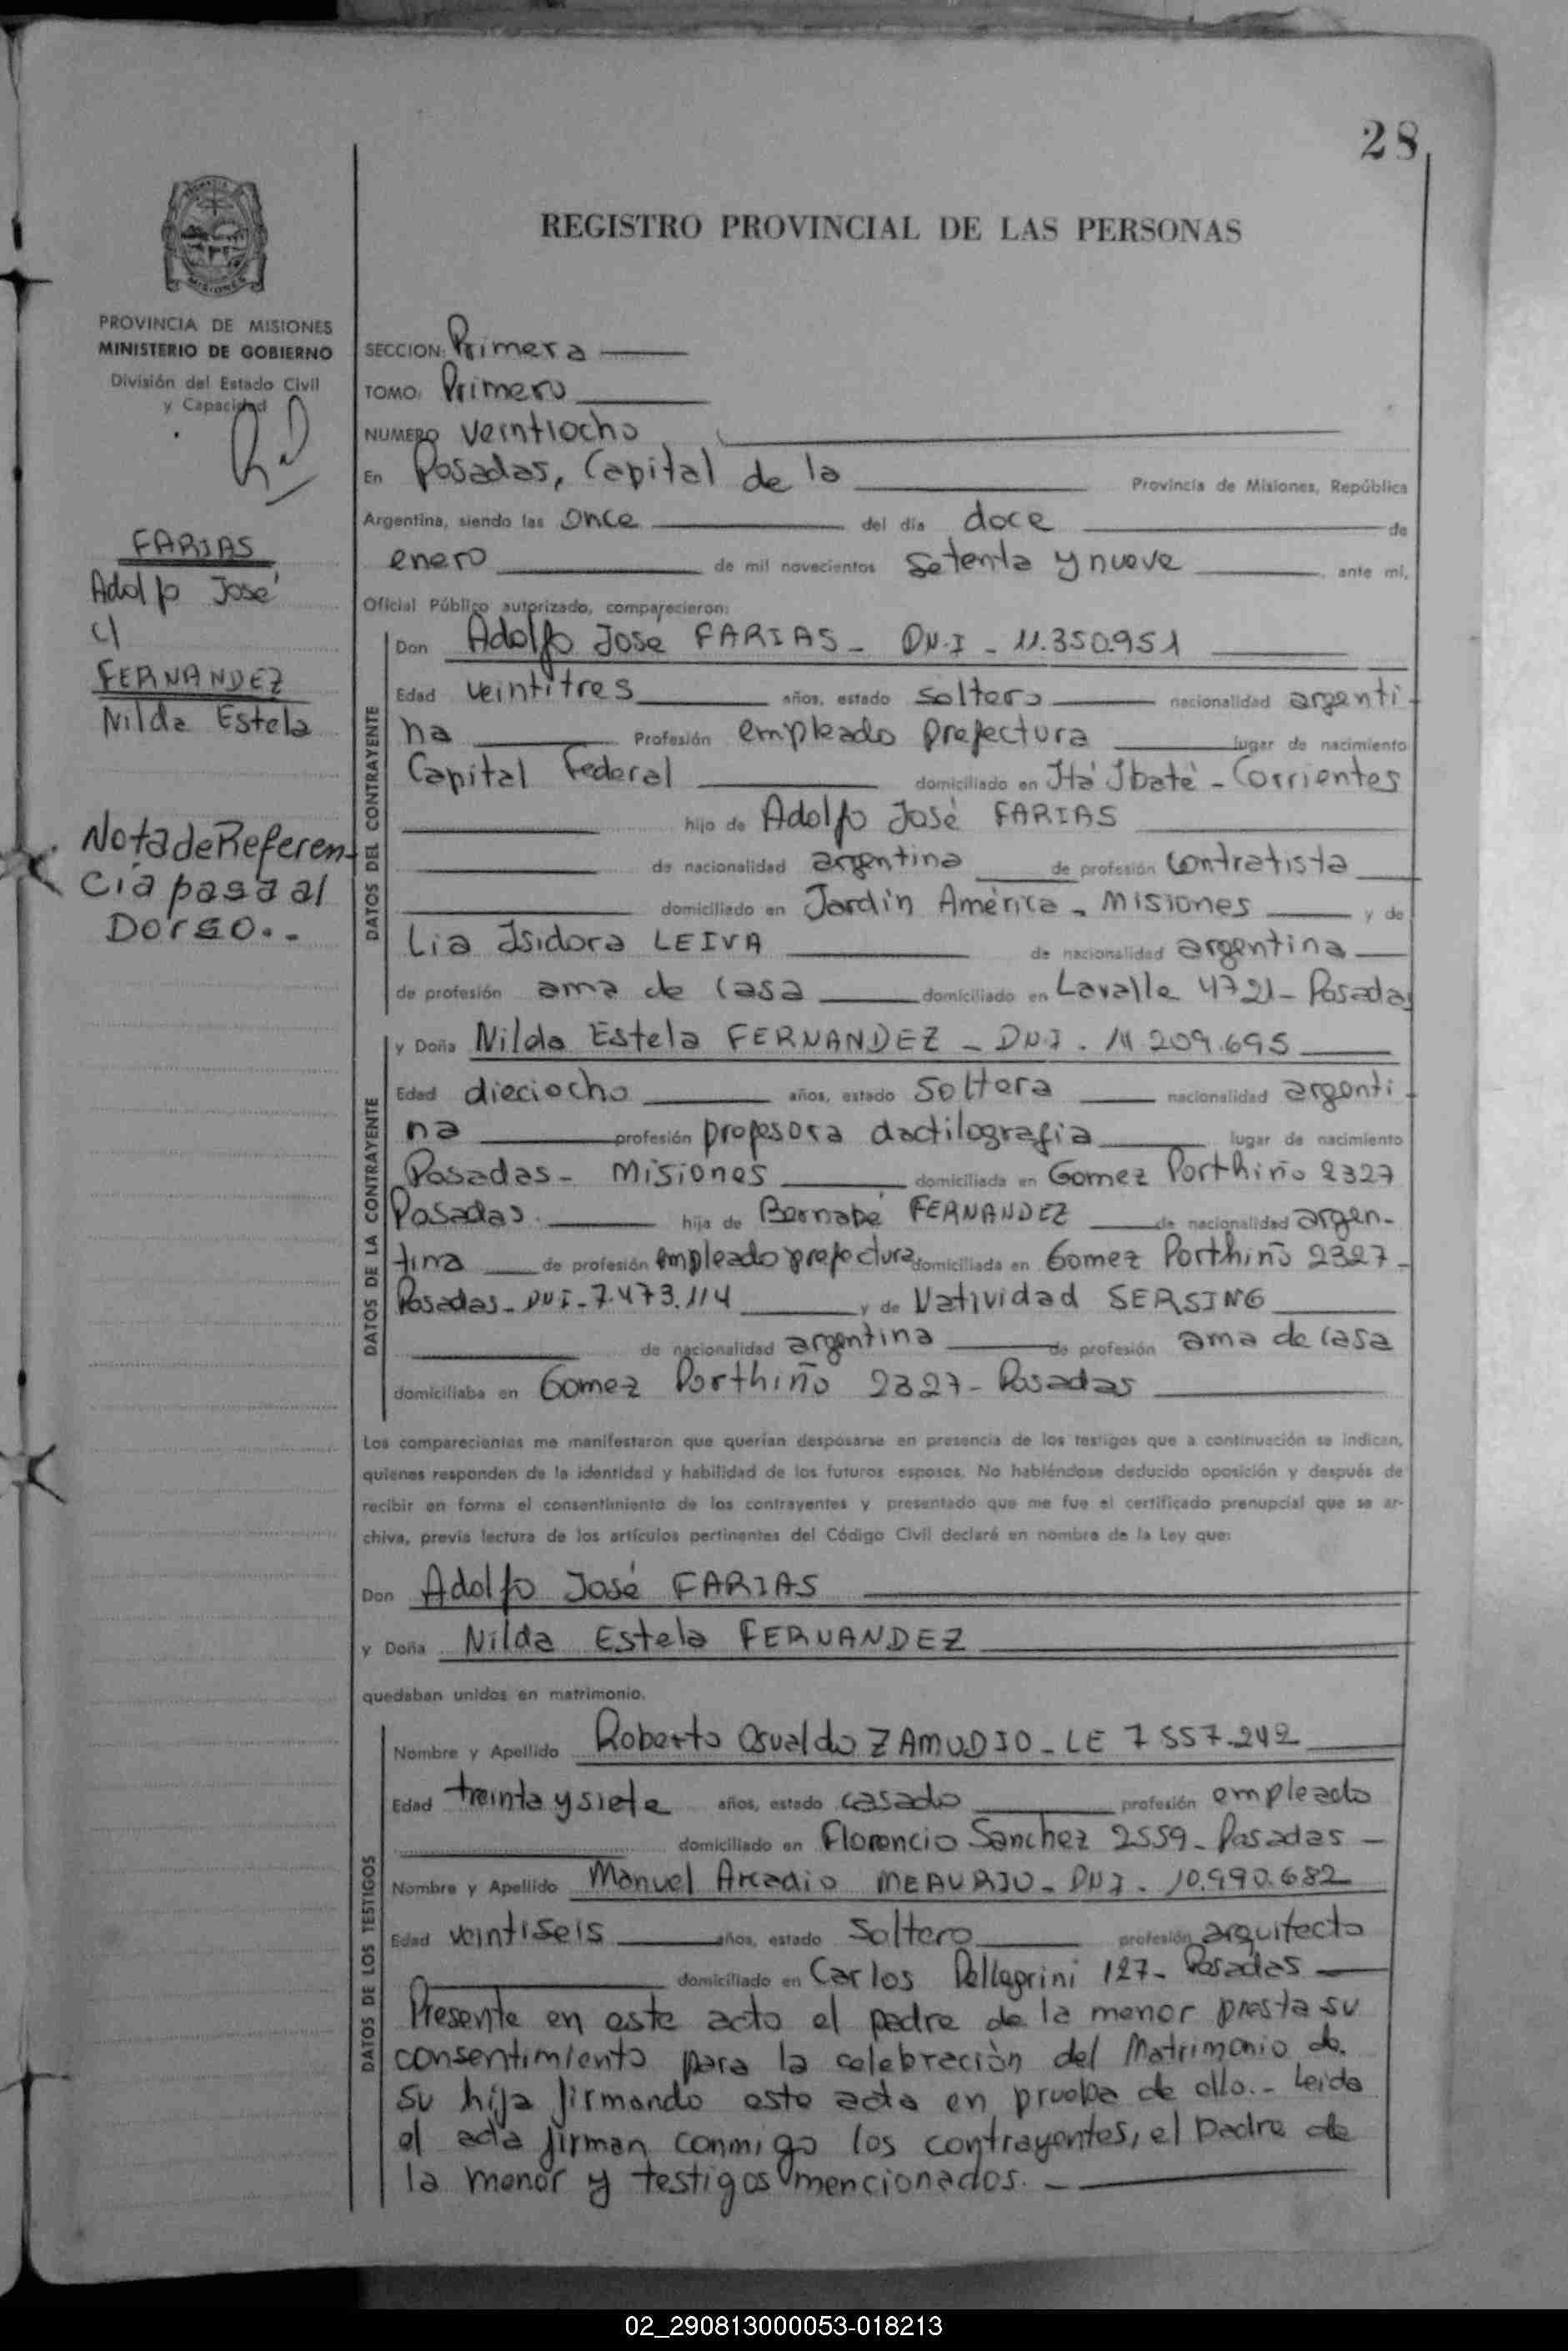 28
REGISTRO PROVINCIAL DE LAS PERSONAS
MISIONES
PROVINCIA DE MISIONES
MINISTERIO DE GOBIERNO
División del Estado Civil
y Capacidad
FARIAS
Adolfo José
c/
FERNANDEZ
Nilda Estela
Nota de Referen-
cia pasa al
Dorso..-
SECCION: Primera
TOMO: Primero
NUMERO veintiocho
En Posadas, Capital de la Provincia de Misiones, República
Argentina, siendo las once del día doce de
enero de mil novecientos setenta y nueve ante mi,
Oficial Público autorizado, comparecieron:
DATOS DEL CONTRAYENTE
Don Adolfo José FARIAS - DN.I - 11.350.951
Edad veintitres años, estado soltero nacionalidad argenti-
na Profesión empleado prefectura lugar de nacimiento
Capital Federal domiciliado en Itá Ibaté - Corrientes
hijo de Adolfo José FARIAS
de nacionalidad argentina de profesión contratista
domiciliado en Jardín América - Misiones y de
Lia Isidora LEIVA de nacionalidad argentina
de profesión ama de casa domiciliado en Lavalle 4721 - Posadas
DATOS DE LA CONTRAYENTE
y Doña Nilda Estela FERNANDEZ - DN.I - 14 209.695
Edad dieciocho años, estado soltera nacionalidad argenti-
na profesión profesora dactilografia lugar de nacimiento
Posadas - Misiones domiciliada en Gomez Porthiño 2327
Posadas. hija de Bernabé FERNANDEZ de nacionalidad argen-
tina de profesión empleado prefectura domiciliada en Gomez Porthiño 2327 -
Posadas - DNI - 7.473.114 y de Natividad SERSING
de nacionalidad argentina de profesión ama de casa
domiciliaba en Gomez Porthiño 2327 - Posadas
Los comparecientes me manifestaron que querían desposarse en presencia de los testigos que a continuación se indican,
quienes responden de la identidad y habilidad de los futuros esposos. No habiéndose deducido oposición y después de
recibir en forma el consentimiento de los contrayentes y presentado que me fue el certificado prenupcial que se ar-
chiva, previa lectura de los artículos pertinentes del Código Civil declaré en nombre de la Ley que:
Don Adolfo José FARIAS
y Doña Nilda Estela FERNANDEZ
quedaban unidos en matrimonio.
DATOS DE LOS TESTIGOS
Nombre y Apellido Roberto Osvaldo ZAMUDIO - LE 7 557.242
Edad treinta y siete años, estado casado profesión empleado
domiciliado en Florencio Sanchez 2559 - Posadas -
Nombre y Apellido Manuel Arcadio MEAURIO - DNI - 10.990.682
Edad veintiseis años, estado soltero profesión arquitecto
domiciliado en Carlos Pellegrini 127 - Posadas
Presente en este acto el padre de la menor presta su
consentimiento para la celebración del Matrimonio de
su hija firmando este acta en prueba de ello.- Leida
el acta firman conmigo los contrayentes, el padre de
la menor y testigos mencionados.
02_290813000053-018213